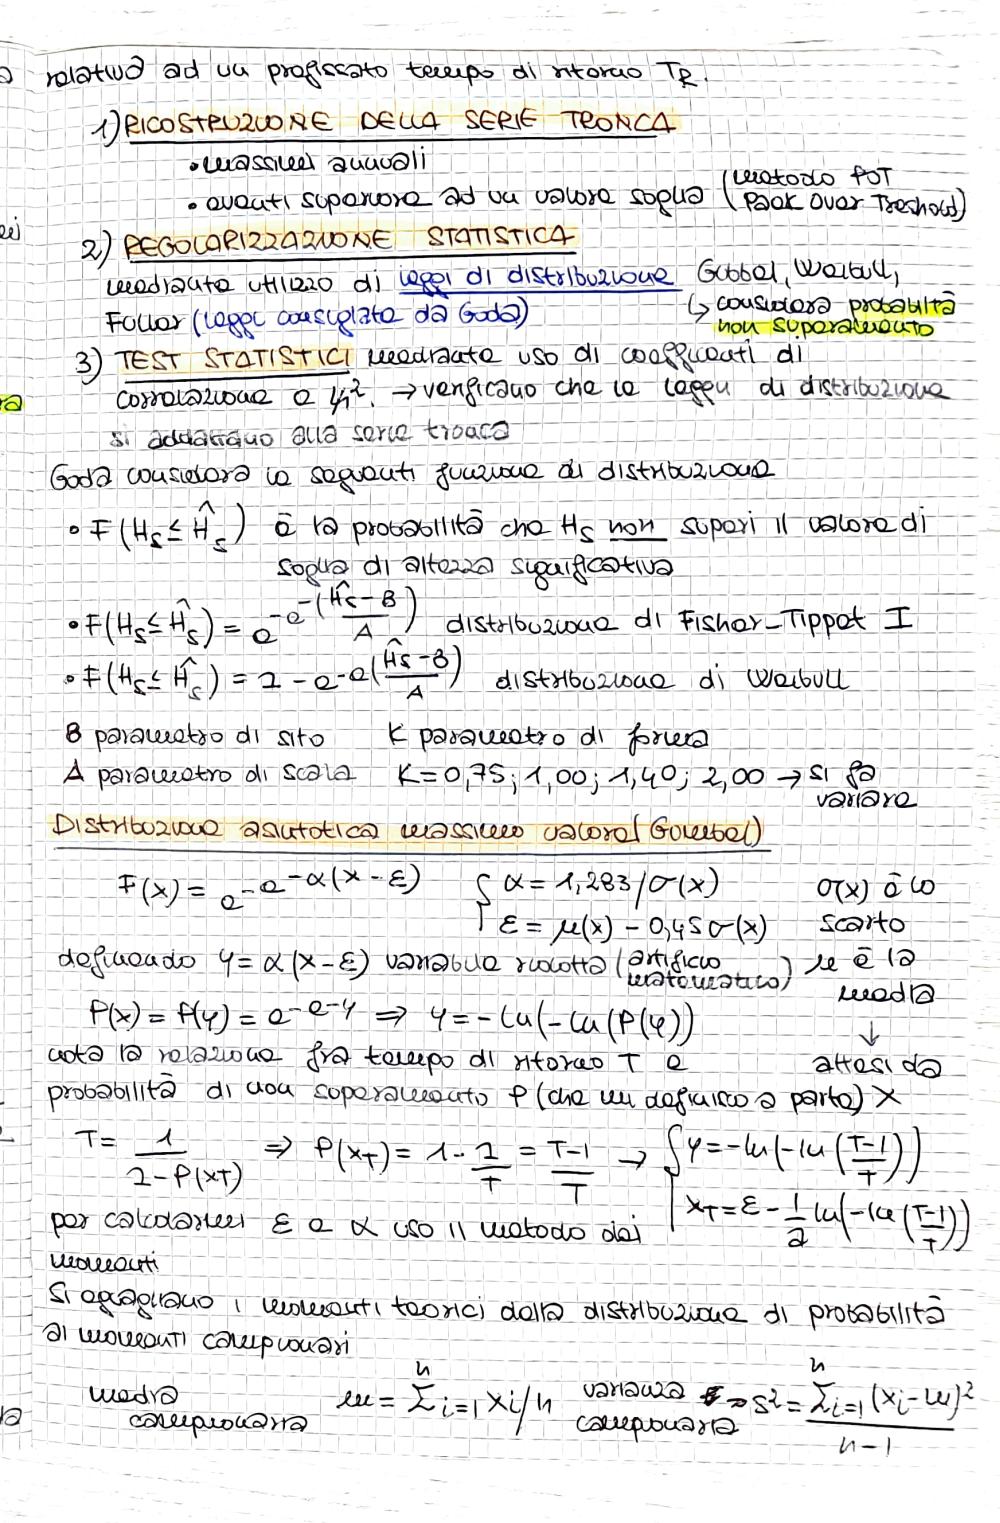 relativa ad un prefissato tempo di ritorno TR.
1) RICOSTRUZIONE DELLA SERIE TRONCA
• massimi annuali
• eventi superiore ad un valore soglia (metodo POT
(Peak Over Treshold)
2) REGOLARIZZAZIONE STATISTICA
mediante utilizzo di leggi di distribuzione Gubbel, Weibull,
Fuller (leggi consigliate da Goda) ↳ considera probabilità
non superamento
3) TEST STATISTICI mediante uso di coefficienti di
correlazione e χ². → verificano che le leggi di distribuzione
si adattino alla serie tronca
Goda considera le seguenti funzione di distribuzione
• F(Hs ≤ Ĥs) è la probabilità che Hs non superi il valore di
soglia di altezza significativa
• F(Hs ≤ Ĥs) = e^-e^-((Ĥs-B)/A) distribuzione di Fisher-Tippet I
• F(Hs ≤ Ĥs) = 1 - e^-e((Ĥs-B)/A) distribuzione di Weibull
B parametro di sito K parametro di forma
A parametro di scala K=0,75; 1,00; 1,40; 2,00 → si fa
variare
Distribuzione asintotica massimo valore (Gumbel)
F(x) = e^-e^-α(x-ε) { α = 1,283/σ(x) σ(x) è lo
ε = μ(x) - 0,45σ(x) scarto
definendo y = α(x-ε) variabile ridotta (artificio μ è la
matematico) media
P(x) = P(y) = e^-e^-y ⇒ y = -ln(-ln(P(y)) ↓
nota la relazione fra tempo di ritorno T e attesi da
probabilità di non superamento P (che mi definisco a parte) X
T = 1/(1-P(xT) ⇒ P(xT) = 1 - 1/T = (T-1)/T → { y = -ln(-ln((T-1)/T))
xT = ε - 1/α ln(-ln((T-1)/T))
per calcolarmi ε e α uso il metodo dei
momenti
Si eguagliano i momenti teorici della distribuzione di probabilità
ai momenti campionari
media campionaria m = Σ^n i=1 xi/n varianza campionaria → s² = Σ^n i=1 (xi-m)²/(n-1)